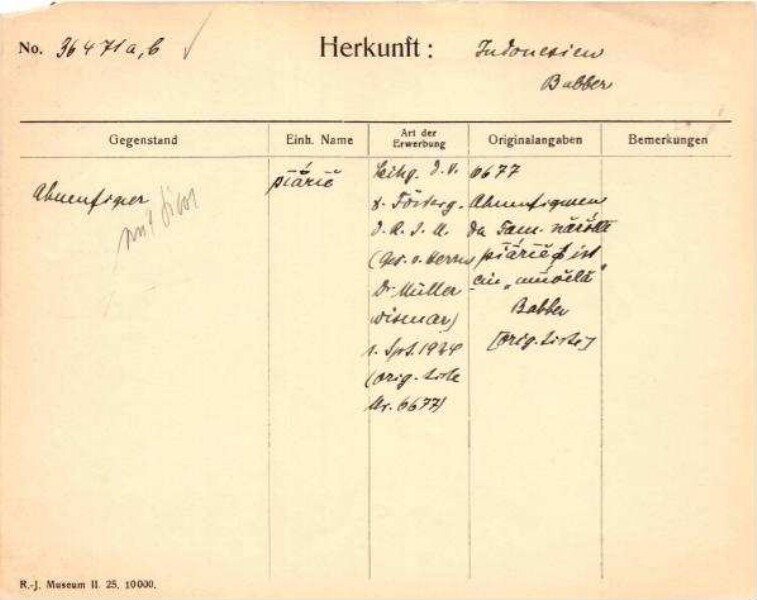 No. 36471a,b Herkunft: Indonesien
Babber
Gegenstand Einh. Name Art der Erwerbung Originalangaben Bemerkungen
Ahnenfigur
mit
piārič
Leihg. d. V.
z. Förderg.
d. R. J. M.
(Ges. v. Herrn
Dr Müller
Wismar)
v. Spt. 1934
(orig. Liste
Nr. 6677)
6677
Ahnenfiguren
da Tam.
piārič ist
ein „
Babber
[orig. Liste]
R.-J. Museum II. 25. 10000.